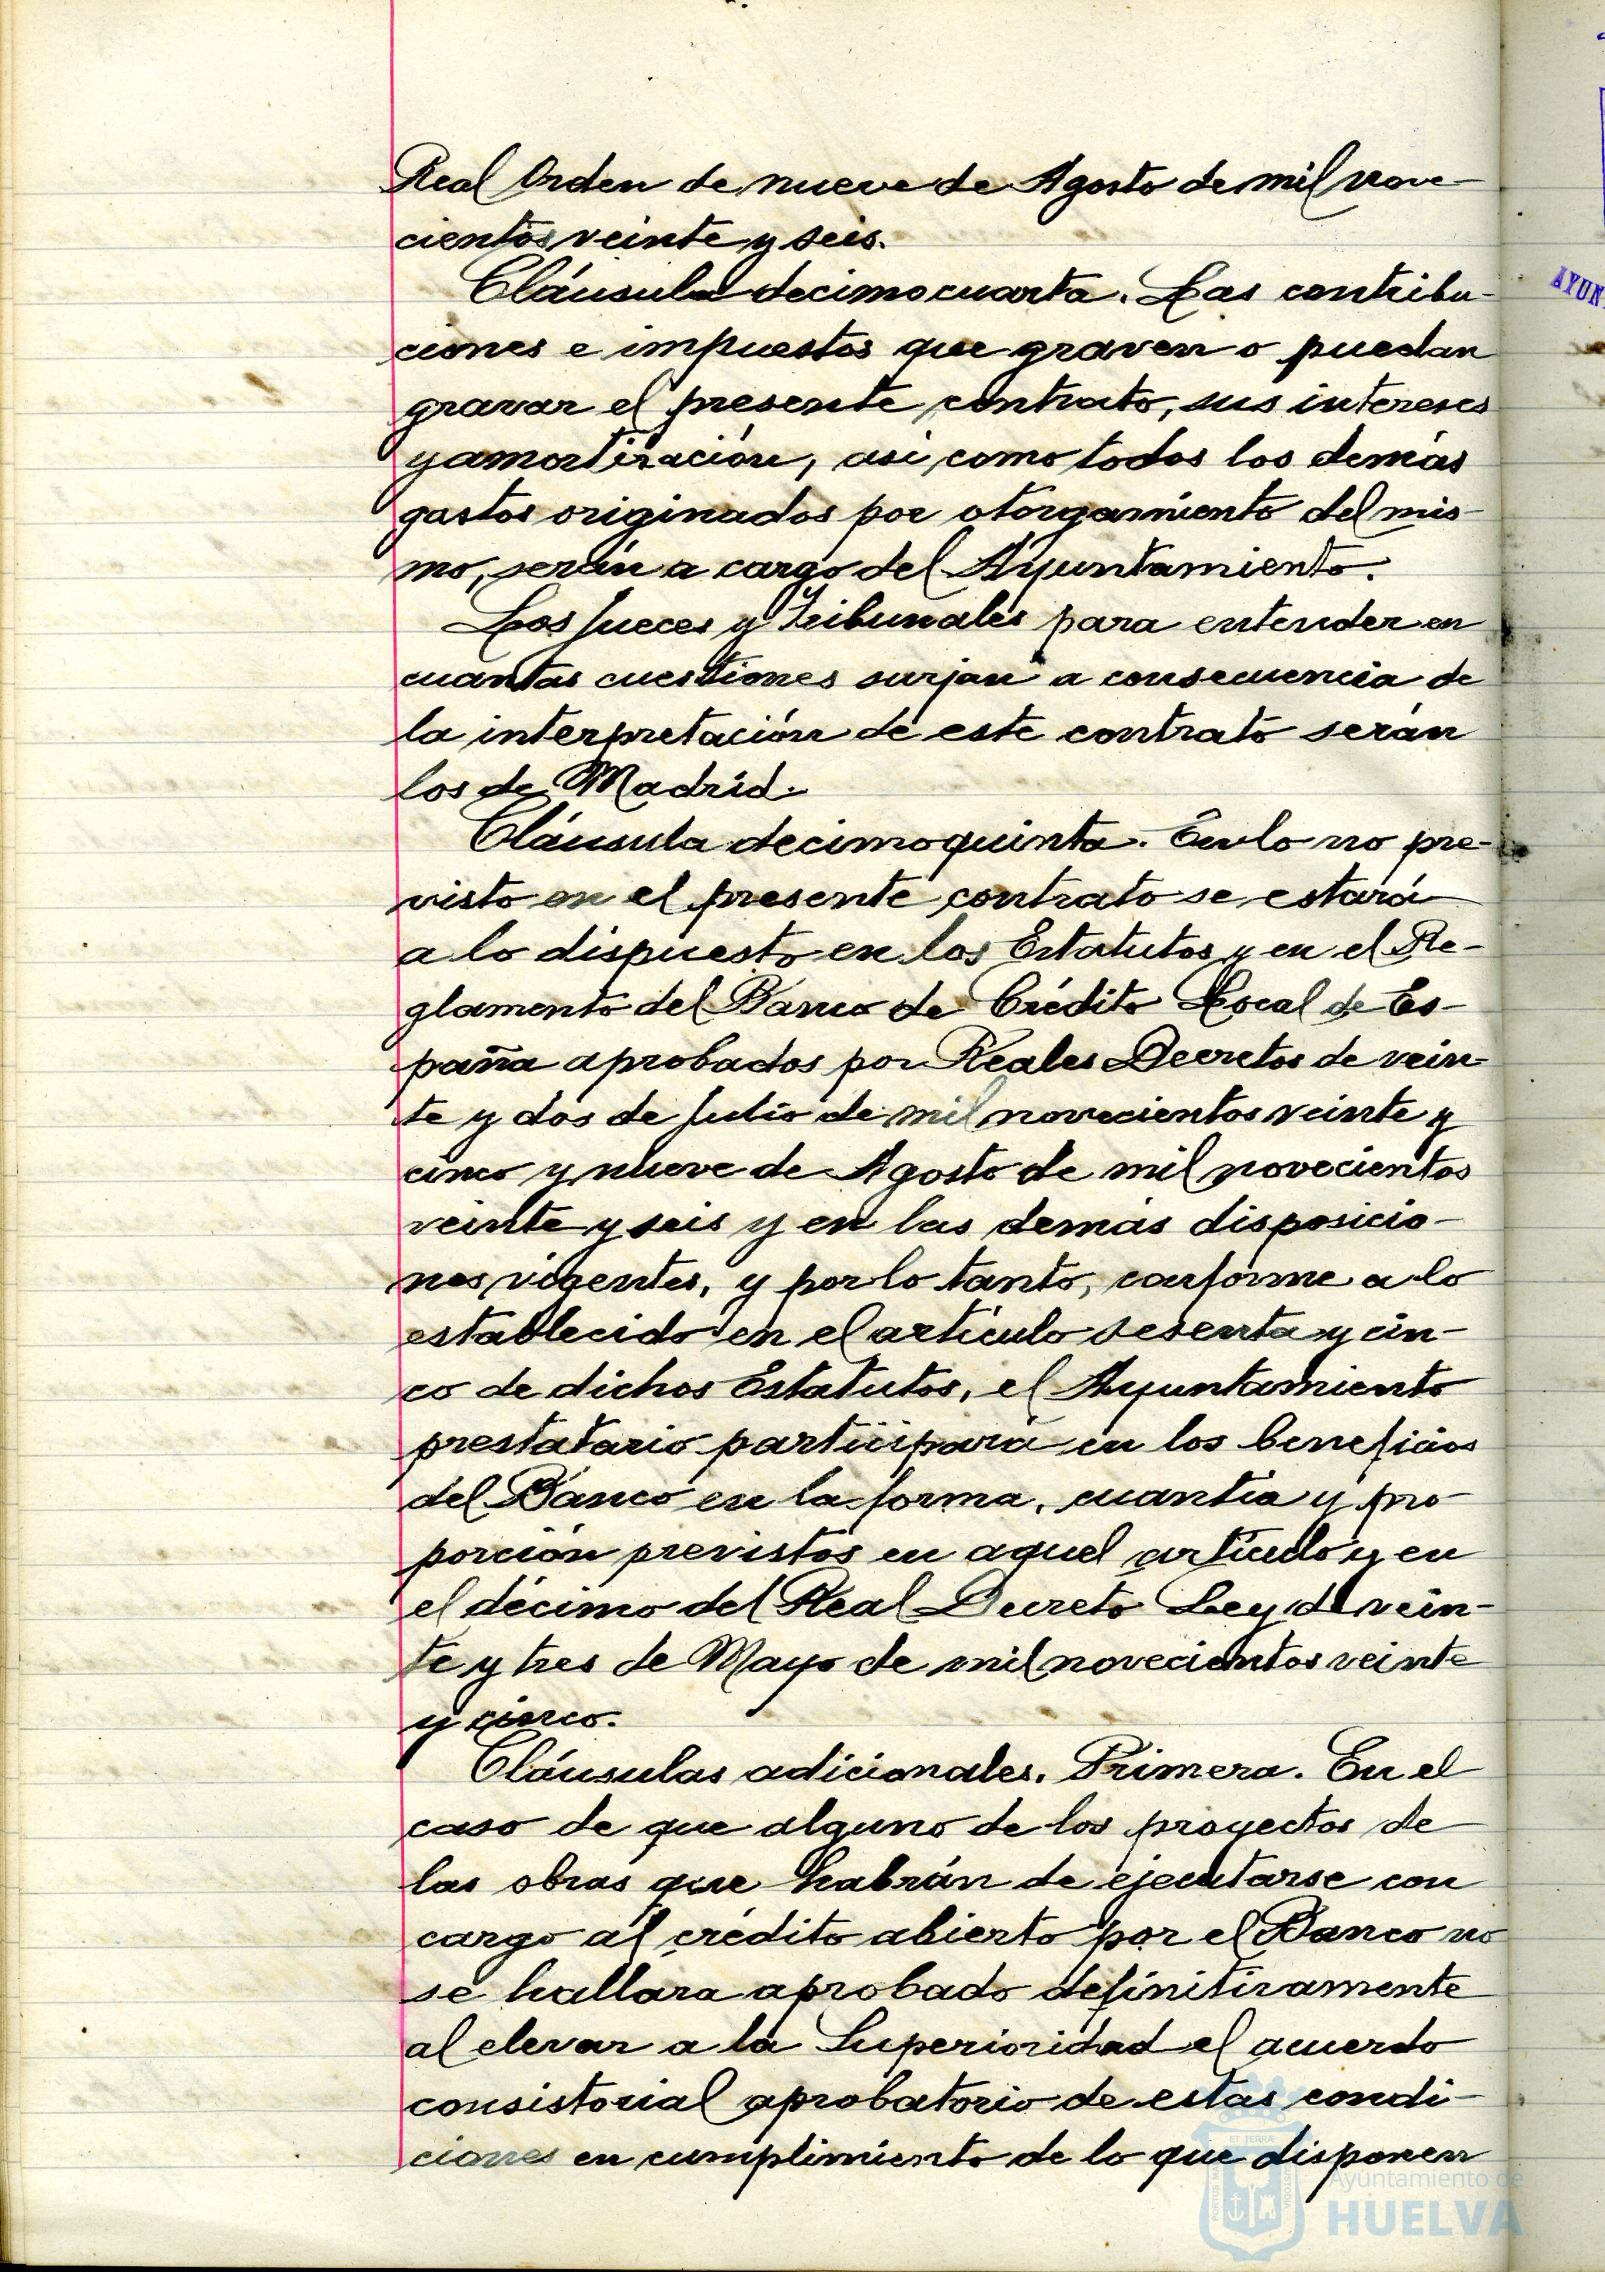 Real Orden de nueve de Agosto de mil nove-
cientos veinte y seis.
Cláusula decimocuarta. Las contribu-
ciones e impuestos que graven o puedan
gravar el presente contrato, sus intereses
y amortización, asi como todos los demás
gastos originados por otorgamiento del mis-
mo, serán a cargo del Ayuntamiento.
Los Jueces y Tribunales para entender en
cuantas cuestiones surjan a consecuencia de
la interpretación de este contrato serán
los de Madrid.
Cláusula decimoquinta. En lo no pre-
visto en el presente contrato se estará
a lo dispuesto en los Estatutos y en el Re-
glamento del Banco de Crédito Local de Es-
paña aprobados por Reales Decretos de vein-
te y dos de Julio de mil novecientos veinte y
cinco y nueve de Agosto de mil novecientos
veinte y seis y en las demás disposicio-
nes vigentes, y por lo tanto, conforme a lo
establecido en el artículo sesenta y cin-
co de dichos Estatutos, el Ayuntamiento
prestatario participará en los beneficios
del Banco en la forma, cuantía y pro-
porción previstos en aquel artículo y en
el décimo del Real Decreto Ley de vein-
te y tres de Mayo de mil novecientos veinte
y cinco.
Cláusulas adicionales. Primera. En el
caso de que alguno de los proyectos de
las obras que habrán de ejecutarse con
cargo al crédito abierto por el Banco no
se hallara aprobado definitivamente
al elevar a la Superioridad el acuerdo
consistorial aprobatorio de estas condi-
ciones en cumplimiento de lo que disponen
Ayuntamiento de
HUELVA
AYUN